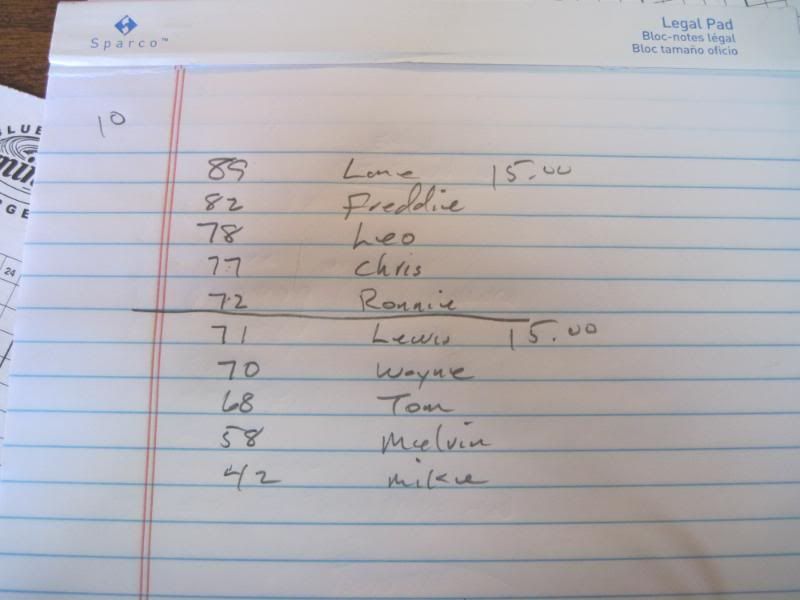 Sparco™
Legal Pad
Bloc-notes légal
Bloc tamaño oficio
10
BLUE
24
89 Lane 15.00
82 Freddie
78 Leo
77 Chris
72 Ronnie
71 Lewis 15.00
70 Wayne
68 Tom
58 Melvin
42 mike